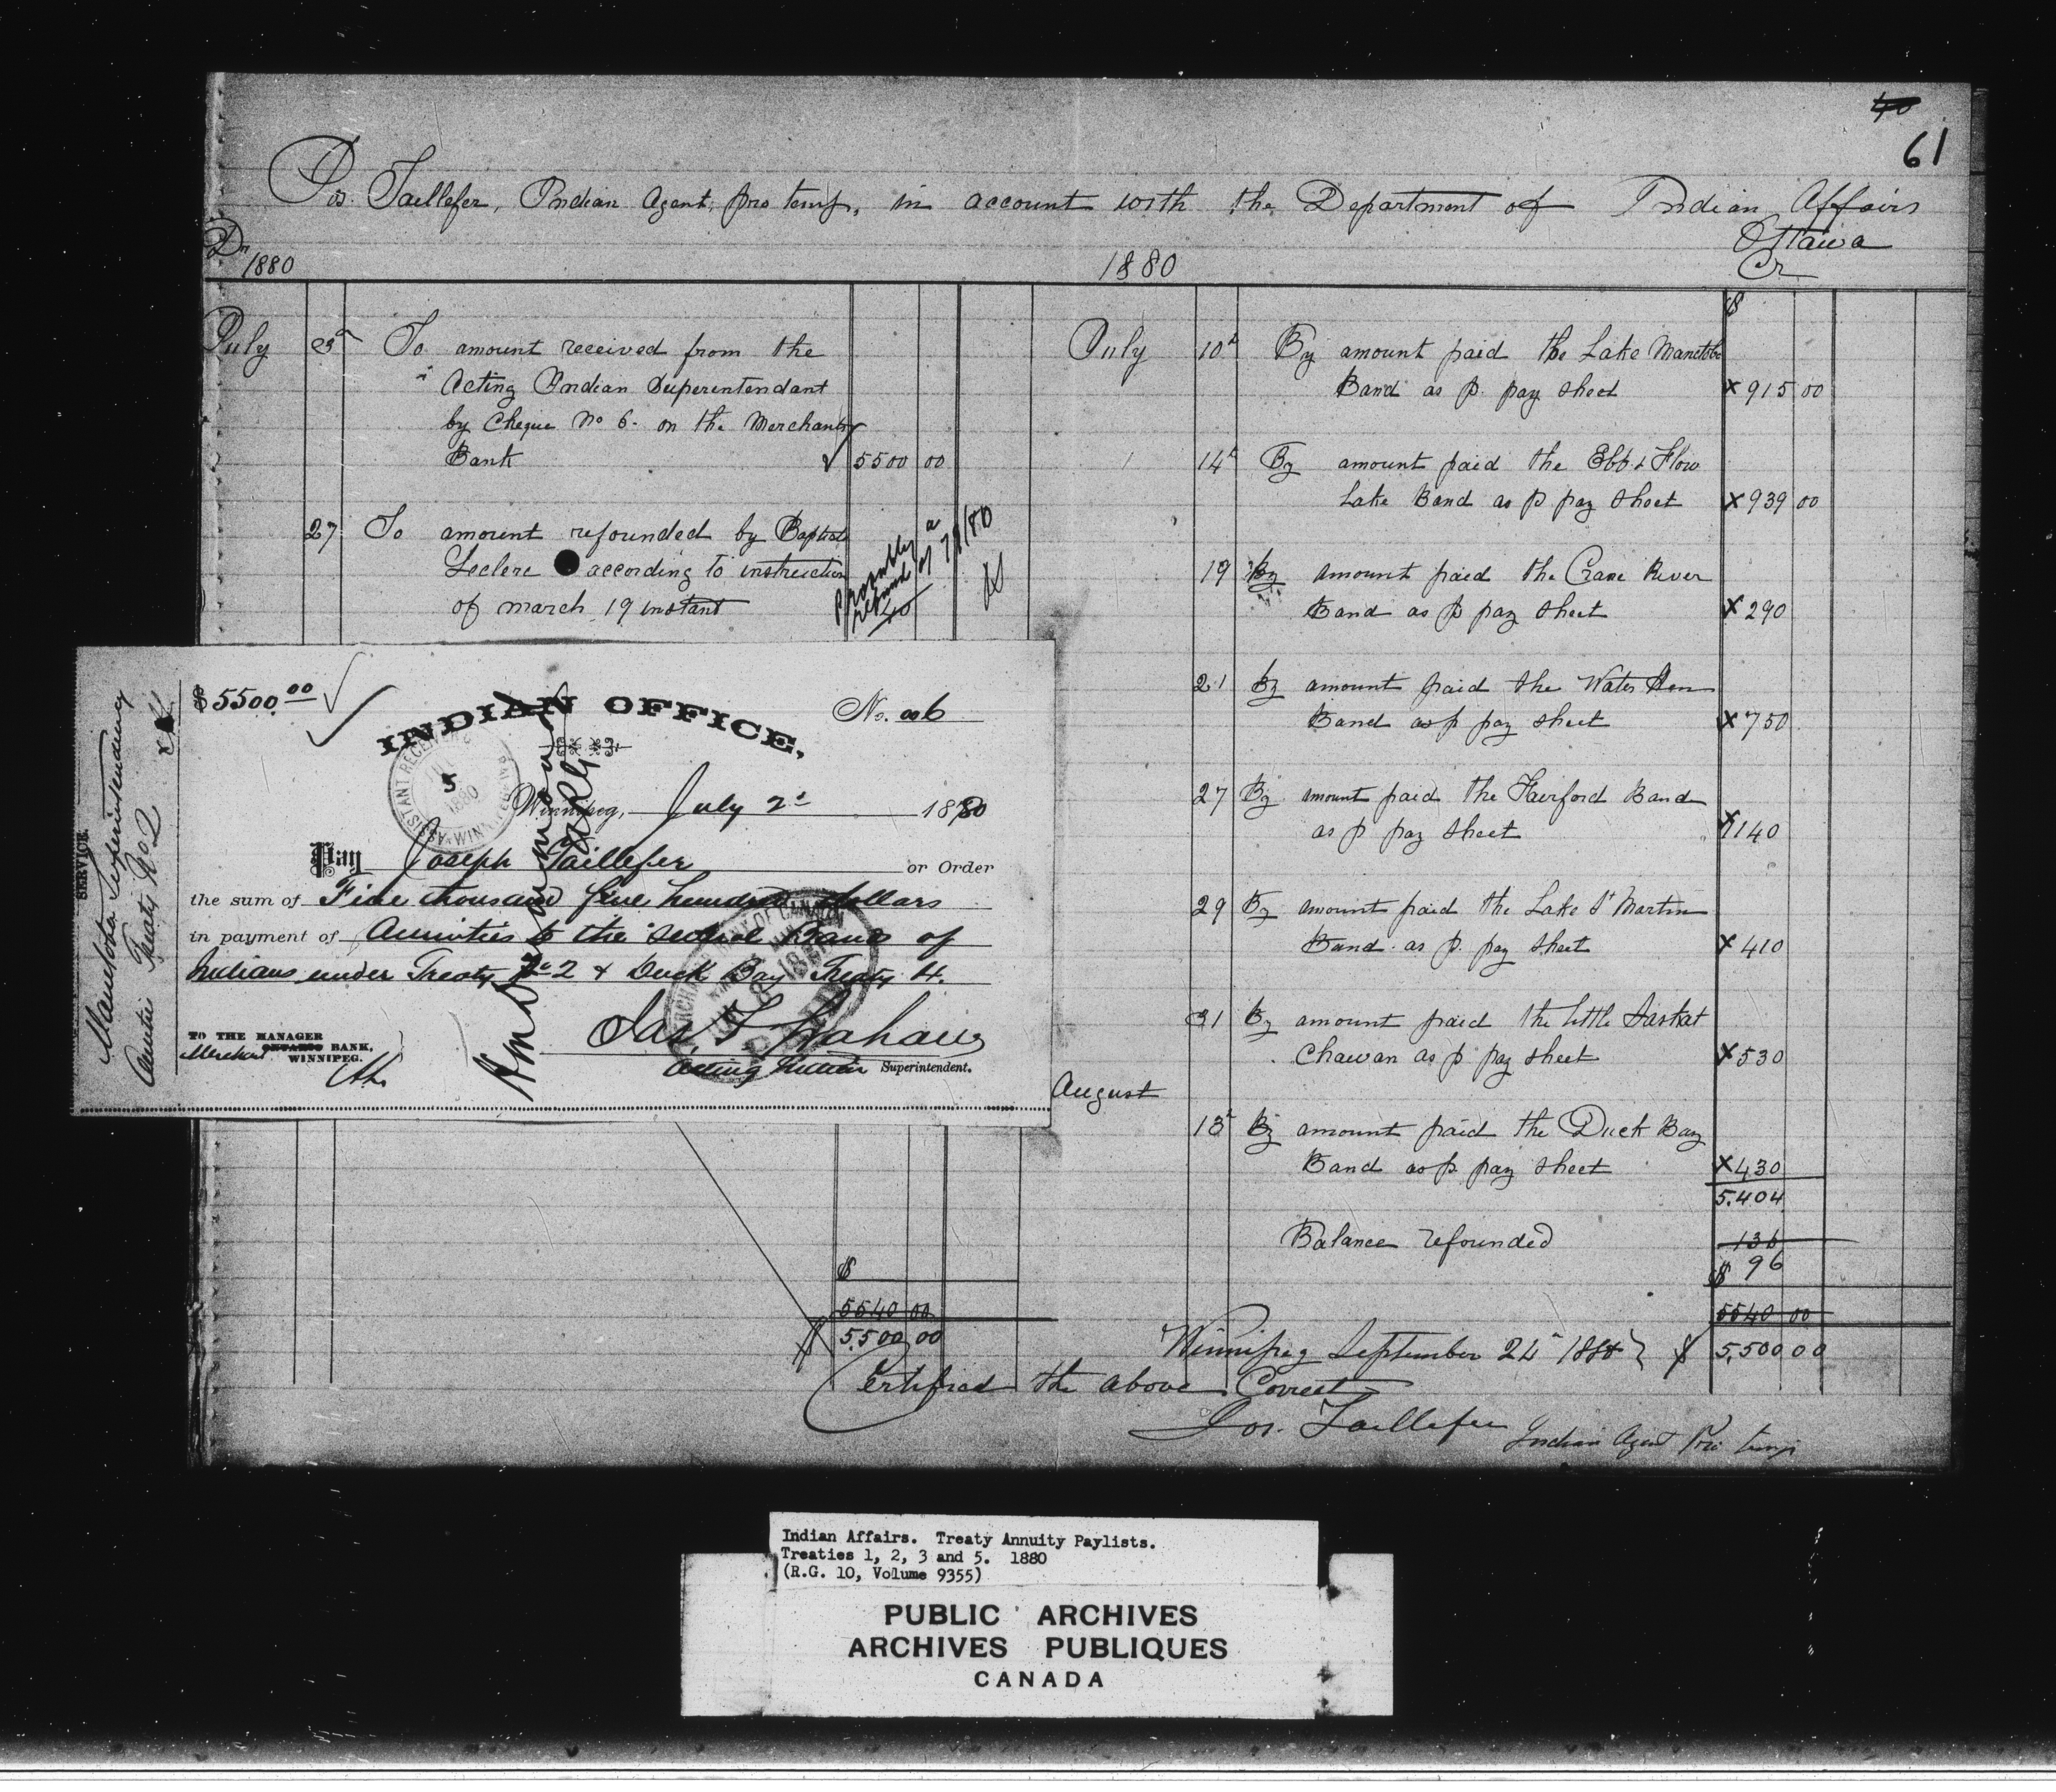 40
61
Jos. Taillefer, Indian Agent, pro temp, in account with the Department of Indian Affairs
Ottawa
Dr
1880
1880
Cr
July 3d To amount received from the
Acting Indian Superentendant
by Cheque No 6. on the Merchants
Bank 5500 00
27 To amount refounded by Baptiste
Leclerc according to instruction
of march 19 instant
40
$
July 10th By amount paid the Lake Manitoba
Band as p. pay sheet x 915 00
14th By amount paid the Ebb & Flow
Lake Band as p pay sheet x 939 00
19 By amount paid the Crane River
Band as p pay sheet x 290
21 By amount paid the Water Hen
Band as p pay sheet x 750
27 By amount paid the Fairford Band
as p pay sheet x 1140
29 By amount paid the Lake St Martin
Band as p. pay sheet x 410
31 By amount paid the little Saskat
chawan as p pay sheet x 530
August
13th By amount paid the Duck Bay
Band as p. pay sheet x 430
5.404
Balance refounded 136
$ 96
5540 00
$ 5.500 00
$
5540 00
$ 5.500 00
Winnipeg September 24th 1880
Certified the above Correct
Jos. Taillefer Indian Agent Pro temp
SERVICE
Manitoba Superintendency
Annuities Treaty No 2
$5500.00
INDIAN OFFICE,
No. 006
Winnipeg, July 2d 1880
Pay Joseph Taillefer or Order
the sum of Five thousand five hundred dollars
in payment of Annuities to the several Bands of
Indians under Treaty No 2 & Duck Bay Treaty 4.
Jas. F. Graham
Acting Indian Superintendent.
TO THE MANAGER
Merchants ONTARIO BANK,
WINNIPEG.
5
1880
Indian Affairs. Treaty Annuity Paylists.
Treaties 1, 2, 3 and 5. 1880
(R.G. 10, Volume 9355)
PUBLIC ARCHIVES
ARCHIVES PUBLIQUES
CANADA